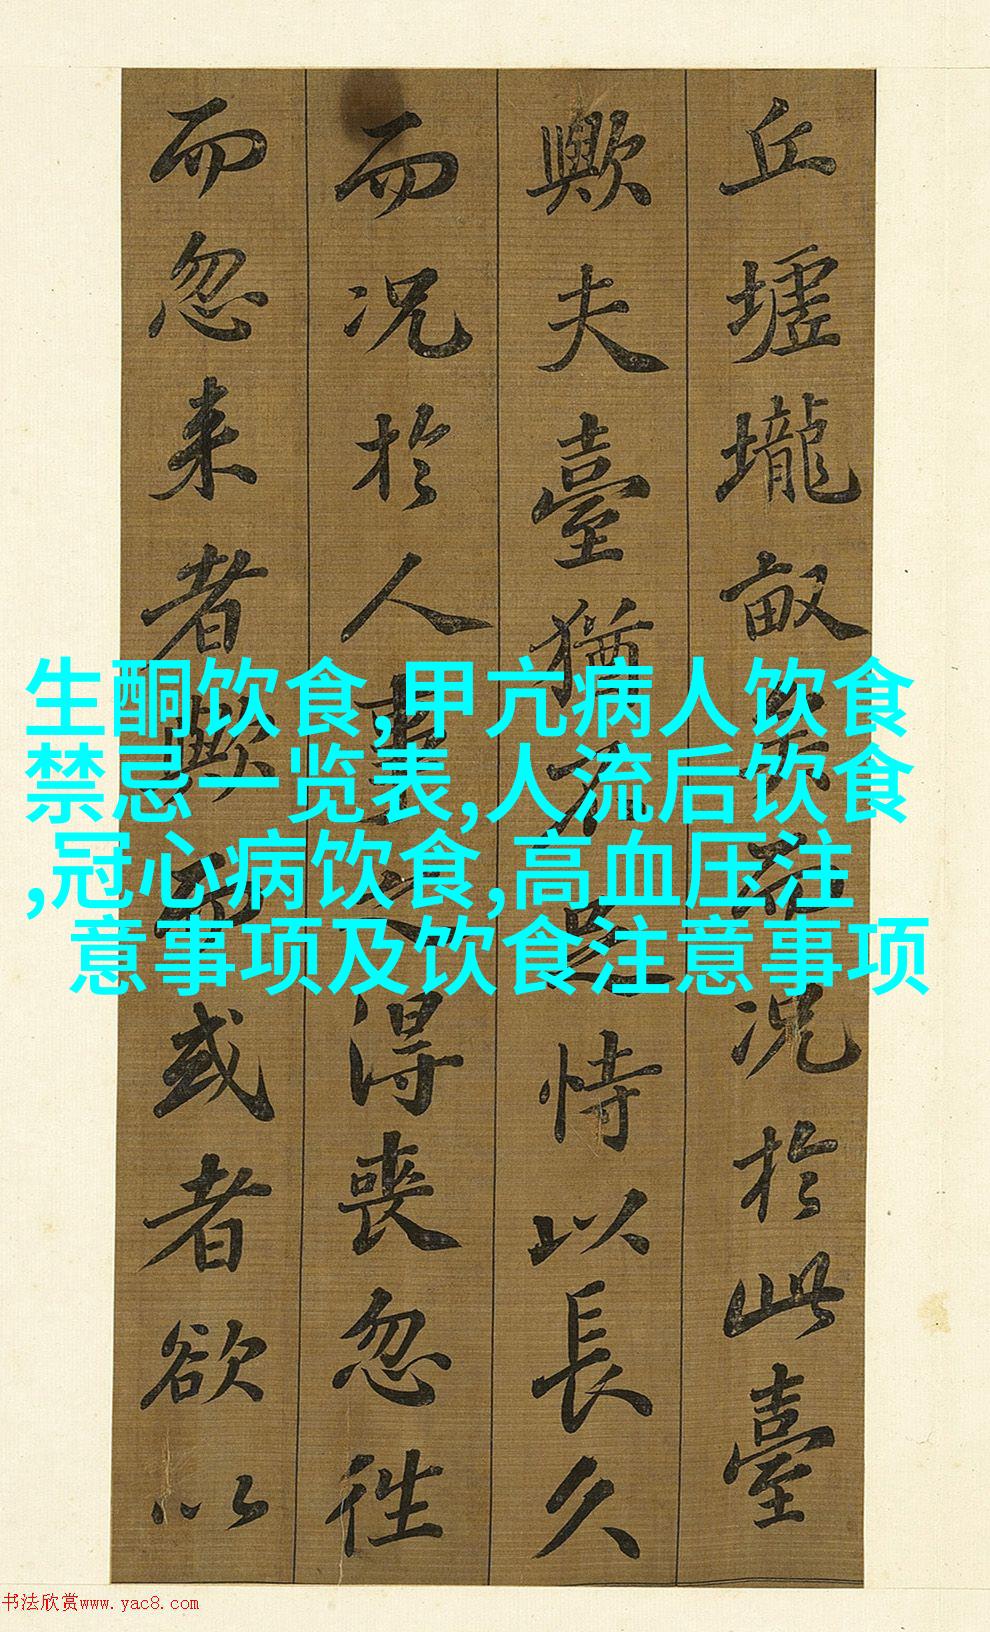 丘墟壠畝矣而况於此臺
歟夫臺猶不足恃以長久
而况於人事之得喪忽往
而忽来者歟而或者欲以
生酮饮食,甲亢病人饮食
禁忌一览表,人流后饮食
,冠心病饮食,高血压注
意事项及饮食注意事项
书法欣赏www.yac8.com